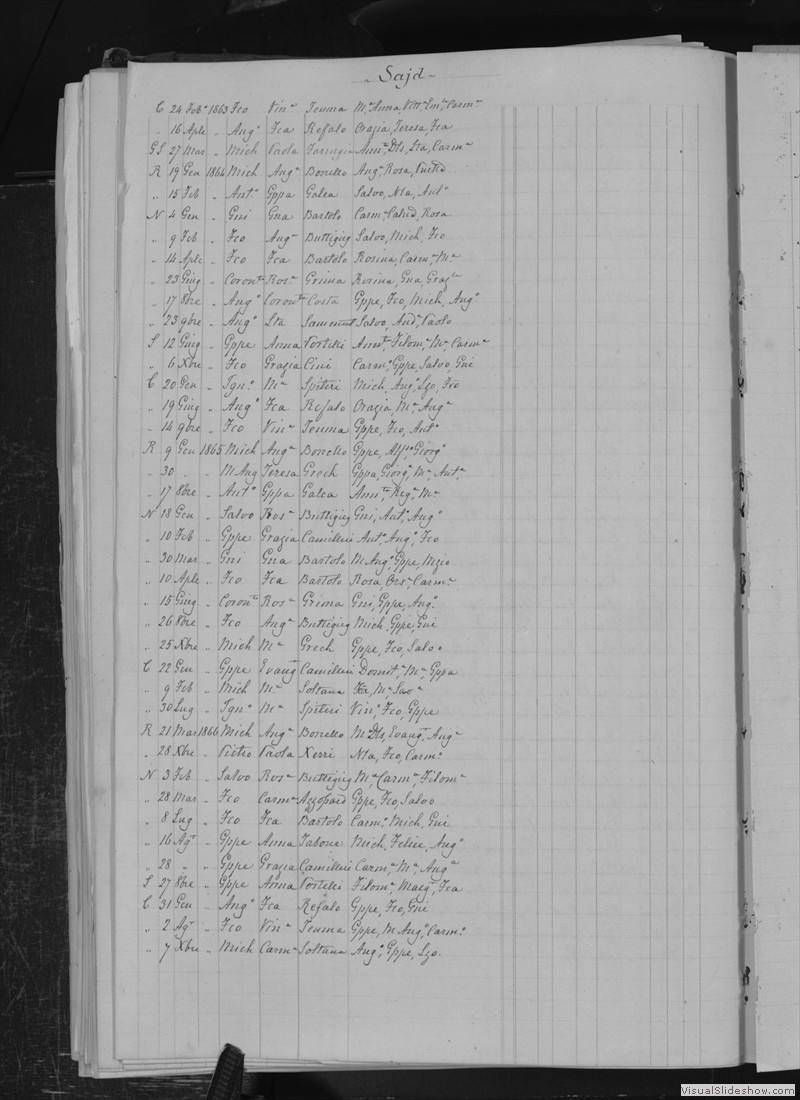 Sajd
C 24 Feb° 1863 Fco Vinᵃ Teuma Mᵃ Anna, Vitt, Emᵃ, Carmᵃ
„ 16 Aple „ Angᵒ Fca Refalo Orazia, Teresa, Fca
GS 27 Mar „ Mich Paola Farrugia Annᵗᵃ, Dls, Sta, Carmᵃ
R 19 Gen 1864 Mich Angᵃ Bonello Angᵃ, Rosa,
„ 15 Feb „ Antᵒ Gppa Galea Salvo, Nta, Antᵒ
N 4 Gen „ Gni Gna Bartolo Carmᵃ, Calcd, Rosa
„ 9 Feb „ Fco Angᵃ Buttigieg Salvo, Mich, Fco
„ 14 Aple „ Fco Fca Bartolo Rosina, Carmᵃ, Mᵃ
„ 23 Giug „ Coronᵗᵒ Rosᵃ Grima Rosina, Gna, Grazᵃ
„ 17 8bre „ Angᵒ Coronᵗᵃ Costa Gppe, Fco, Mich, Angᵒ
„ 23 9bre „ Angᵒ Sta Sammut Salvo, Andᵃ, Paolo
S 12 Giug „ Gppe Anna Portelli Annᵗᵃ, Filomᵃ, Mᵃ, Carmᵃ
„ 6 Xbre „ Fco Grazia Cini Carmᵒ, Gppe, Salvo, Gni
C 20 Gen „ Ignᵒ Mᵃ Spiteri Mich, Angᵒ, Lzo, Fco
„ 19 Giug „ Angᵒ Fca Refalo Orazia, Mᵃ, Angᵃ
„ 14 9bre „ Fco Vinᵃ Teuma Gppe, Fco, Antᵒ
R 9 Gen 1865 Mich Angᵃ Bonello Gppe, Alfᵒ, Giorgᵒ
„ 30 „ „ M Ang Teresa Grech Gppa, Giorgᵃ, Mᵃ, Antᵃ
„ 17 8bre „ Antᵒ Gppa Galea Annᵗᵃ, Regᵃ, Mᵃ
N 18 Gen „ Salvo Rosᵃ Buttigieg Gni, Antᵒ, Angᵒ
„ 10 Feb „ Gppe Grazia Camilleri Antᵒ, Angᵒ, Fco
„ 30 Mar „ Gni Gna Bartolo M Angᵒ, Gppe, Nzio
„ 10 Aple „ Fco Fca Bartolo Rosa, Orsᵃ, Carmᵃ
„ 15 Giug „ Coronᵗᵒ Rosᵃ Grima Gni, Gppe, Angᵒ
„ 26 8bre „ Fco Angᵃ Buttigieg Mich, Gppe, Gni
„ 25 Xbre „ Mich Mᵃ Grech Gppe, Fco, Salvo
C 22 Gen „ Gppe Evangᵗᵃ Camilleri Domᵃ, Mᵃ, Gppa
„ 9 Feb „ Mich Mᵃ Soltana Fca, Mᵃ, Savᵃ
„ 30 Lug „ Ignᵒ Mᵃ Spiteri Vinᵒ, Fco, Gppe
R 21 Mar 1866 Mich Angᵃ Bonello Mᵃ Dls, Evangᵗᵃ, Angᵃ
„ 28 Xbre „ Pietro Paola Xerri Nta, Fco, Carmᵃ
N 3 Feb „ Salvo Rosᵃ Buttigieg Mᵃ, Carmᵃ, Filomᵃ
„ 28 Mar „ Fco Carmᵃ Azzopard Gppe, Fco, Salvo
„ 8 Lug „ Fco Fca Bartolo Carmᵒ, Mich, Gni
„ 16 Agᵗ „ Gppe Anna Tabone Mich, Felice, Angᵒ
„ 28 „ „ Gppe Grazia Camilleri Carmᵃ, Mᵃ, Angᵃ
S 27 8bre „ Gppe Anna Portelli Filomᵃ, Margᵗᵃ, Fca
C 31 Gen „ Angᵒ Fca Refalo Gppe, Fco, Gni
„ 2 Agᵗ „ Fco Vinᵃ Teuma Gppe, M Angᵒ, Carmᵒ
„ 7 Xbre „ Mich Carmᵃ Soltana Angᵒ, Gppe, Lzo.
VisualSlideshow.com